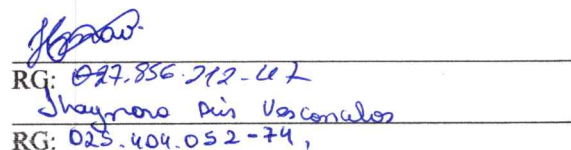 RG: 027.856.212-47
Thaynara Reis Vasconcelos
RG: 025.404.052-74,